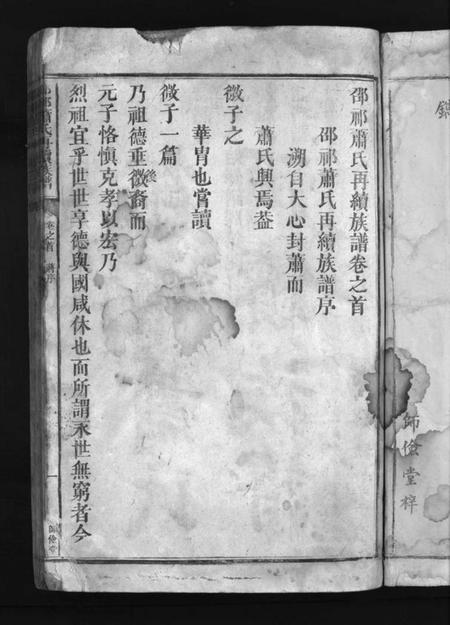 鐫
師儉堂梓
邵祁蕭氏再續族譜卷之首
邵祁蕭氏再續族譜序
溯自大心封蕭而
蕭氏興焉葢
微子之
華胄也嘗讀
微子一篇
乃祖德垂後裔而
元子恪愼克孝以宏乃
烈祖宜乎世世享德與國咸休也而所謂永世無窮者今
邵祁蕭氏再續族譜
卷之首 譜序
一
師儉堂